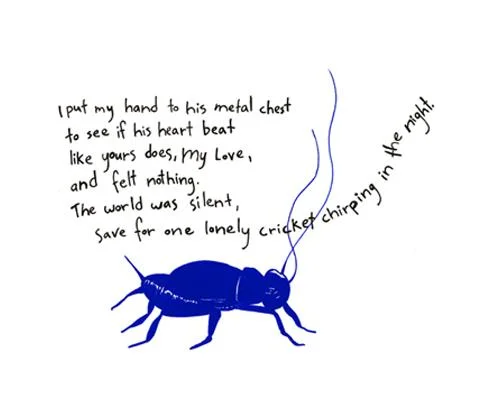 I put my hand to his metal chest
to see if his heart beat
like yours does, my Love,
and felt nothing.
The world was silent,
save for one lonely cricket chirping in the night.